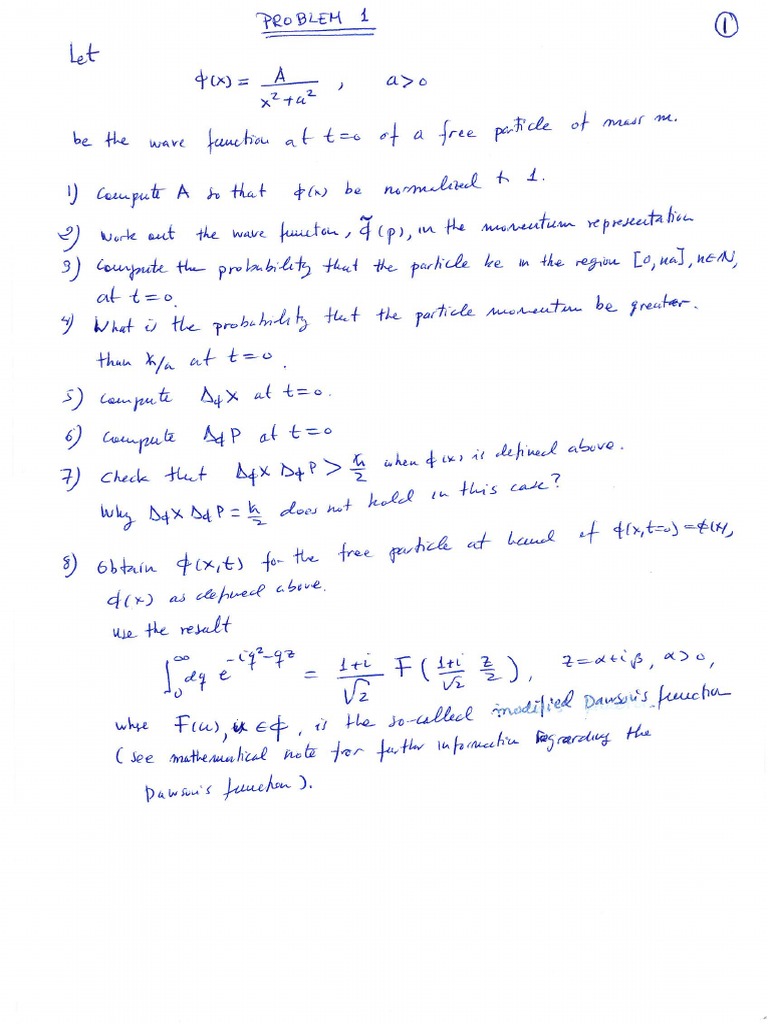 PROBLEM 1
①
Let
ϕ(x) = A / (x² + a²) , a > 0
be the wave function at t=0 of a free particle of mass m.
1) Compute A so that ϕ(x) be normalized to 1.
2) Work out the wave functon, ϕ̃(p), in the momentum representation
3) Compute the probability that the particle be in the region [0, na], n∈ℕ,
at t=0.
4) What is the probability that the particle momentum be greater
than ħ/a at t=0.
5) Compute Δϕ X at t=0.
6) Compute Δϕ P at t=0
7) Check that Δϕ X Δϕ P > ħ/2 when ϕ(x) is defined above.
Why Δϕ X Δϕ P = ħ/2 does not hold in this case?
8) Obtain ϕ(x,t) for the free particle at hand if ϕ(x,t=0) = ϕ(x),
ϕ(x) as defined above.
Use the result
∫₀^∞ dq e^{-iq²-qz} = (1+i)/√2 F( (1+i)/√2 z/2 ), z = α+iβ, α>0,
where F(u), u ∈ ℂ, is the so-called modified Dawson's function
(see mathematical note for further information regrarding the
Dawson's function).